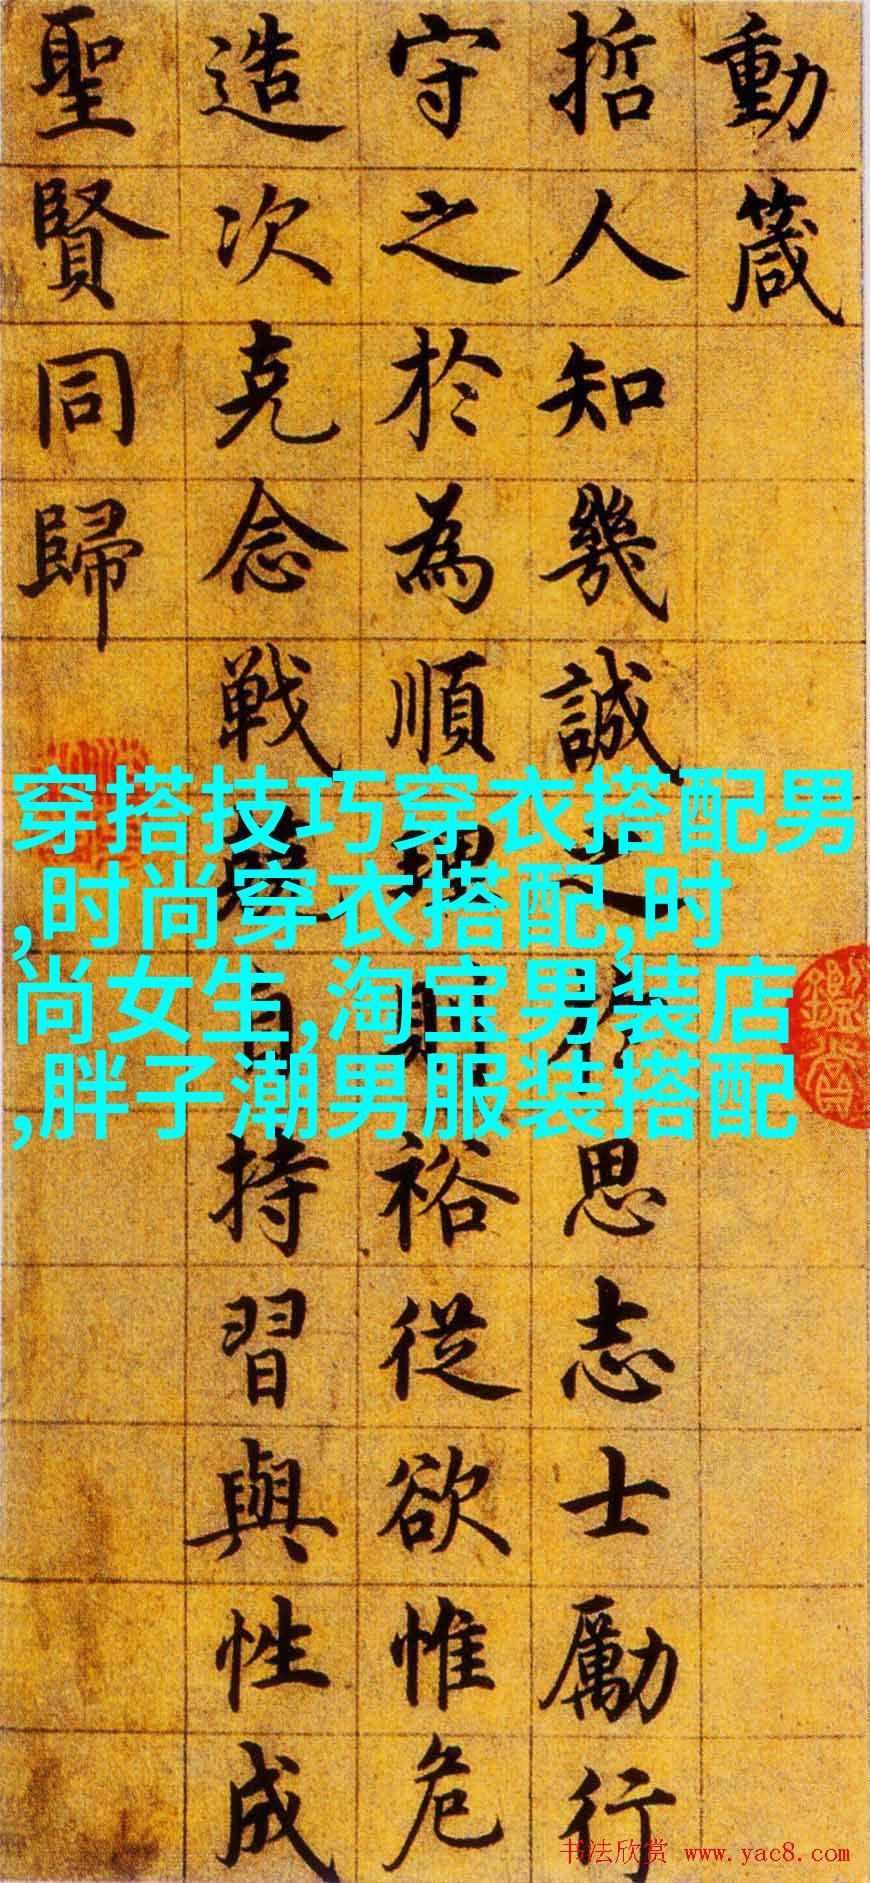 動箴
哲人知幾誠之於思志士勵行
守之於為順理則裕從欲惟危
造次克念戦自持習與性成
聖賢同歸
穿搭技巧穿衣搭配男
,时尚穿衣搭配,时
尚女生,淘宝男装店
,胖子潮男服装搭配
书法欣赏 www.yac8.com